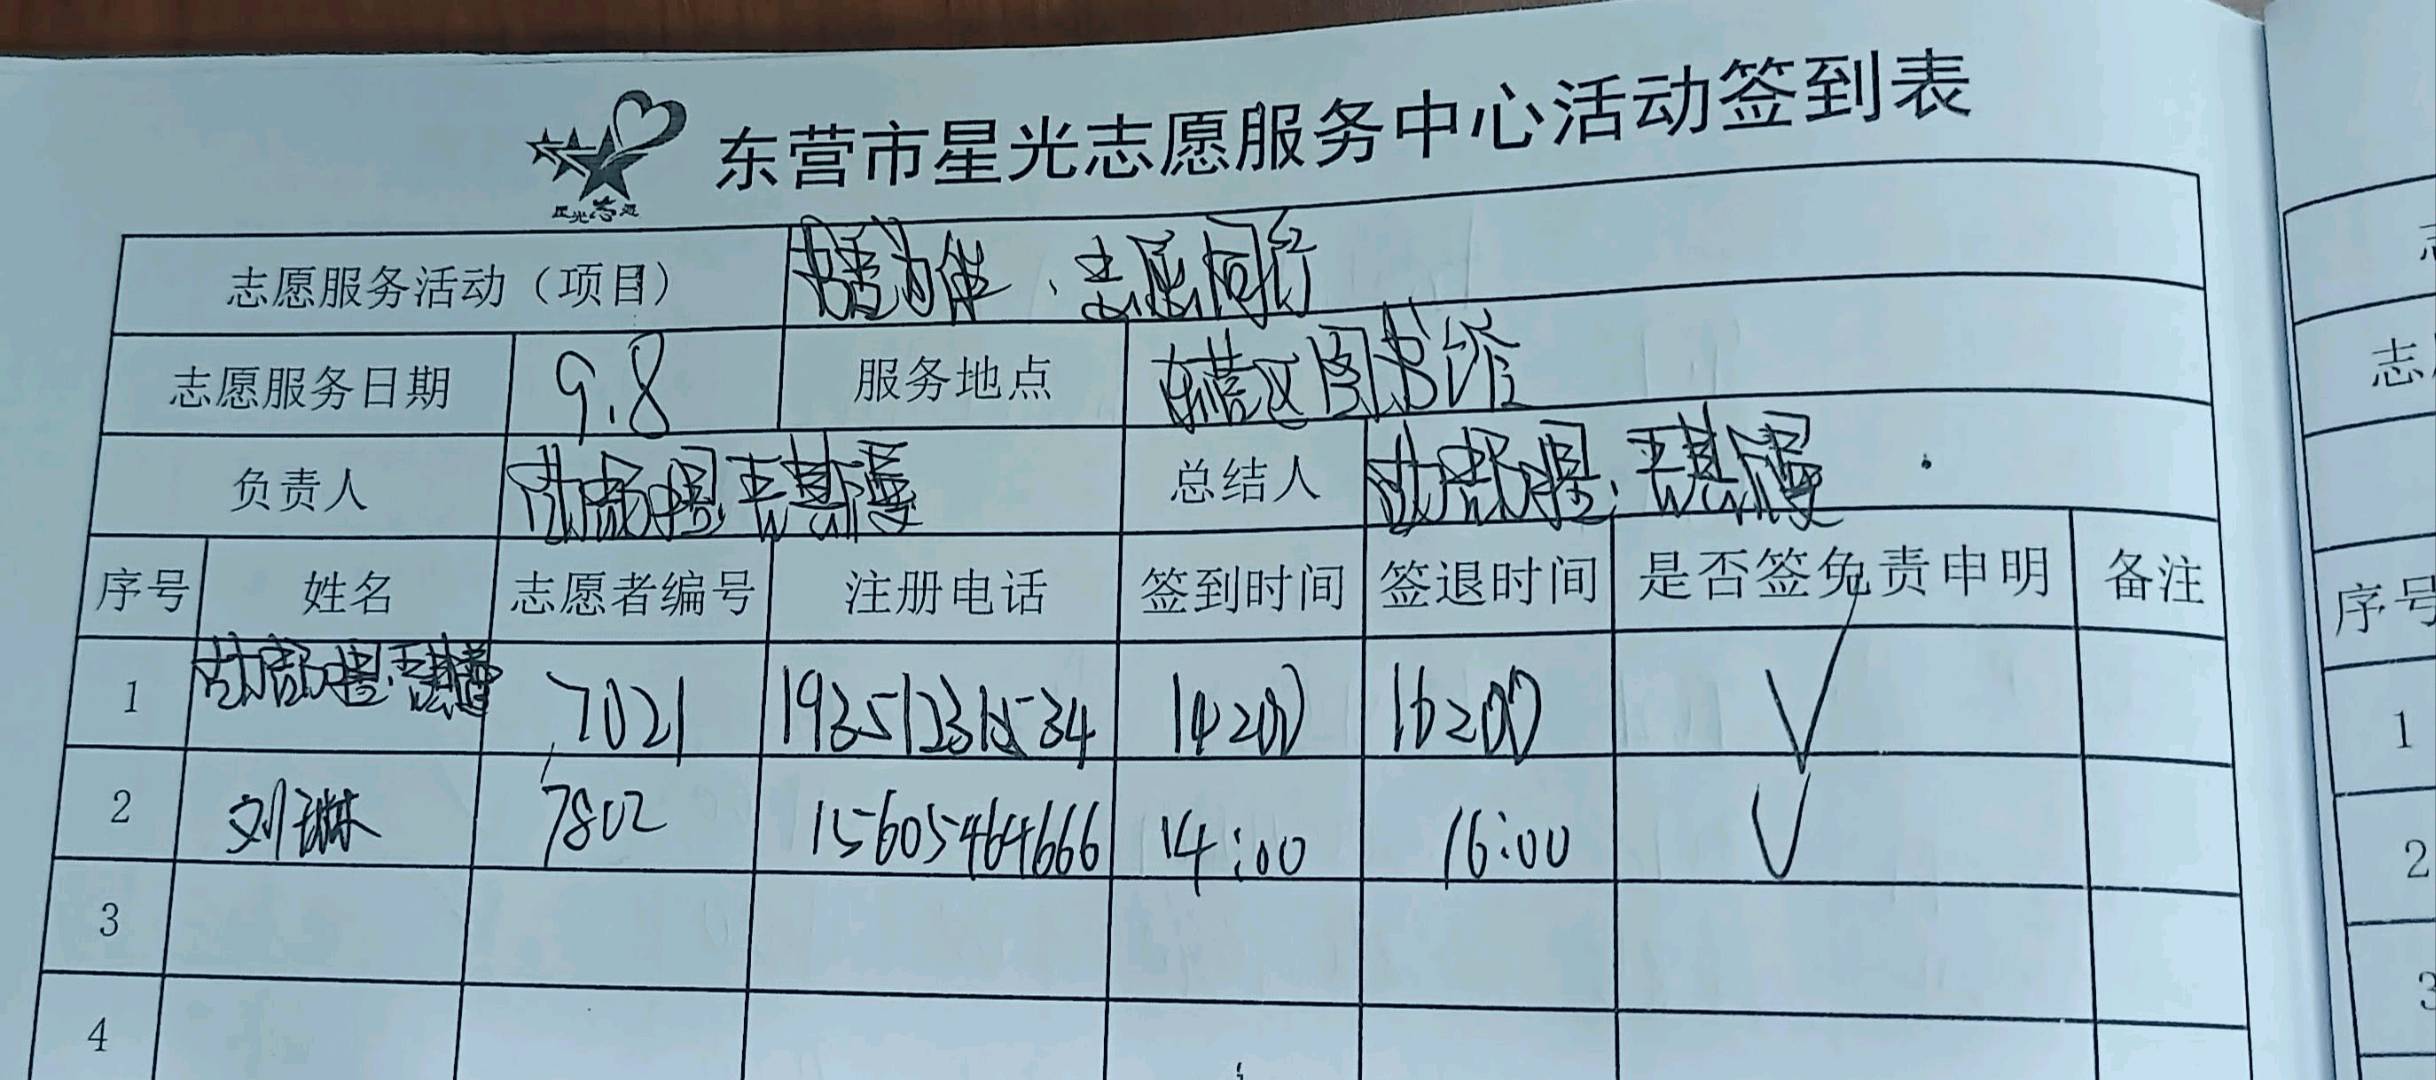 东营市星光志愿服务中心活动签到表
星光志愿
志愿服务活动（项目） 书香为伴、志愿同行
志愿服务日期 9.8 服务地点 东营区图书馆
负责人 总结人
序号 姓名 志愿者编号 注册电话 签到时间 签退时间 是否签免责申明 备注
1 7021 14:00 16:00 √
2 刘琳 7802 15605464666 14:00 16:00 √
3
4
志
序号
1
2
3